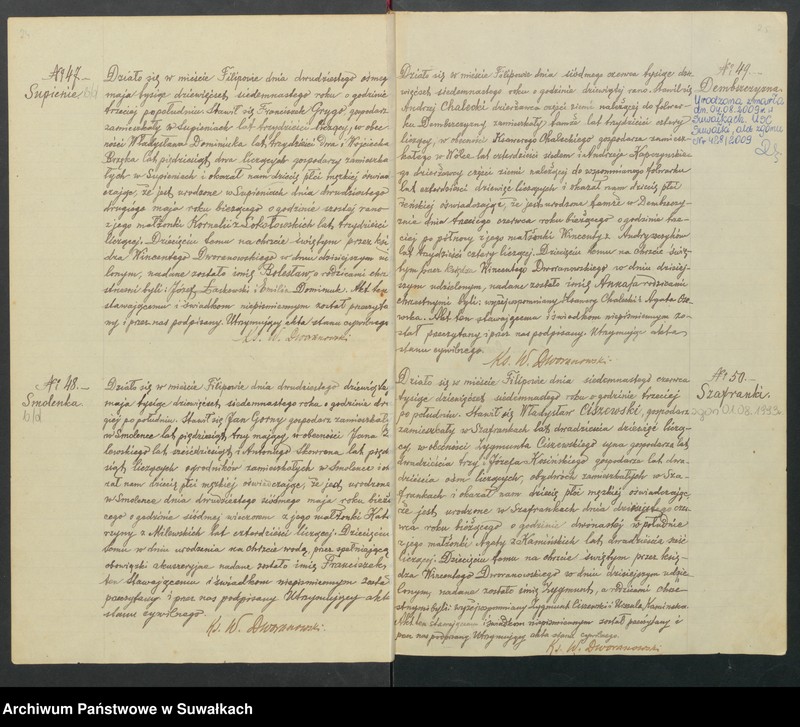 № 47.
Supienie b/d
Działo się w mieście Filipowie dnia dwudziestego ósmego
maja tysiąc dziewięćset siedemnastego roku o godzinie
trzeciej popołudniu. Stawił się Franciszek Gryga, gospodarz
zamieszkały w Supieniach lat trzydzieści liczący, w obec-
ności Władysława Dominuka lat trzydzieści dwa i Wojciecha
lat pięćdziesiąt dwa liczących gospodarzy zamieszka-
łych w Supieniach i okazał nam dziecię płci męskiej oświad-
czając, że jest urodzone w Supieniach dnia dwudziestego
drugiego maja roku bieżącego o godzinie szóstej rano
z jego małżonki Kornelii z Sokołowskich lat trzydzieści
liczącej. Dziecięciu temu na chrzcie świętym przez księ-
dza Wincentego Dworanowskiego w dniu dzisiejszym udzie-
lonym, nadane zostało imię Bolesław, a rodzicami chrze-
stnemi byli: Józef Laskowski i Emilia Dominuk. Akt ten
stawającemu i świadkom niepiśmiennym został przeczyta-
ny i przez nas podpisany. Utrzymujący akta stanu cywilnego
Ks. W. Dworanowski.
№ 48.
Smolenka.
b/d
Działo się w mieście Filipowie dnia dwudziestego dziewiątego
maja tysiąc dziewięćset siedemnastego roku o godzinie dru-
giej po południu. Stawił się Jan Górny gospodarz zamieszkały
w Smolence lat pięćdziesiąt trzy mający, w obecności Jana
lat sześćdziesiąt i Antoniego Skowrona lat pięćdzie-
siąt liczących ogrodników zamieszkałych w Smolence i oka-
zał nam dziecię płci męskiej oświadczając, że jest urodzone
w Smolence dnia dwudziestego siódmego maja roku bieżą-
cego o godzinie siódmej wieczorem z jego małżonki Kata-
rzyny z Milewskich lat czterdzieści liczącej. Dziecięciu
temu w dniu urodzenia na chrzcie wodą, przez spełniającą
obowiązki akuszeryjne nadane zostało imię Franciszek,
ten stawającemu i świadkom niepiśmiennym został
przeczytany i przez nas podpisany Utrzymujący akta
stanu cywilnego.
Ks. W. Dworanowski.
№ 49.
Dembszczyzna.
Urodzona zmarła
dn. 04.08.2009 r. w
Suwałkach USC
Suwałki, akt zgonu
Nr 428/2009
Działo się w mieście Filipowie dnia siódmego czerwca tysiąc dzie-
więćset siedemnastego roku o godzinie dziewiątej rano. Stawił się
Andrzej Chalecki dzierżawca części ziemi należącej do folwar-
ku Dembszczyzny zamieszkały tamże lat trzydzieści cztery
liczący, w obecności Ksawerego Chaleckiego gospodarza zamiesz-
kałego w Wólce lat czterdzieści siedem i Andrzeja Kopczyńskie-
go dzierżawcy części ziemi należącej do wspomnianego folwarku
lat czterdzieści dziewięć liczących i okazał nam dziecię płci
żeńskiej oświadczając, że jest urodzone tamże w Dembszczy-
znie dnia trzeciego czerwca roku bieżącego o godzinie trze-
ciej po północy z jego małżonki Wincenty z Andrzejczyków
lat trzydzieści cztery liczącej. Dziecięciu temu na chrzcie świę-
tym przez księdza Wincentego Dworanowskiego w dniu dzisiej-
szym udzielonym, nadane zostało imię Anna, a rodzicami
chrzestnymi byli: wyżej wspomniany Ksawery Chalecki i Agata
Akt ten stawającemu i świadkom niepiśmiennym zo-
stał przeczytany i przez nas podpisany. Utrzymujący akta
stanu cywilnego.
Ks. W. Dworanowski.
№ 50.
Szafranki.
zgon 01.08.1993
Działo się w mieście Filipowie dnia siedemnastego czerwca
tysiąc dziewięćset siedemnastego roku o godzinie trzeciej
po południu. Stawił się Władysław Ciszewski, gospodarz
zamieszkały w Szafrankach lat dwadzieścia dziewięć liczą-
cy, w obecności Zygmunta Ciszewskiego syna gospodarza lat
dwadzieścia trzy i Józefa Kosińskiego gospodarza lat dwa-
dzieścia osm liczących, obydwóch zamieszkałych w Sza-
frankach i okazał nam dziecię płci męskiej oświadczając,
że jest urodzone w Szafrankach dnia dwunastego czer-
wca roku bieżącego o godzinie dwunastej w południe
z jego małżonki Agaty z Kamińskich lat dwadzieścia sześć
liczącej. Dziecięciu temu na chrzcie świętym przez księ-
dza Wincentego Dworanowskiego w dniu dzisiejszym udzie-
lonym, nadane zostało imię Zygmunt, a rodzicami chrze-
stnymi byli: wyżej wspomniany Zygmunt Ciszewski i Urszula Kamińska.
Akt ten stawającemu i świadkom niepiśmiennym został przeczytany i
przez nas podpisany Utrzymujący akta stanu cywilnego.
Ks. W. Dworanowski
Archiwum Państwowe w Suwałkach